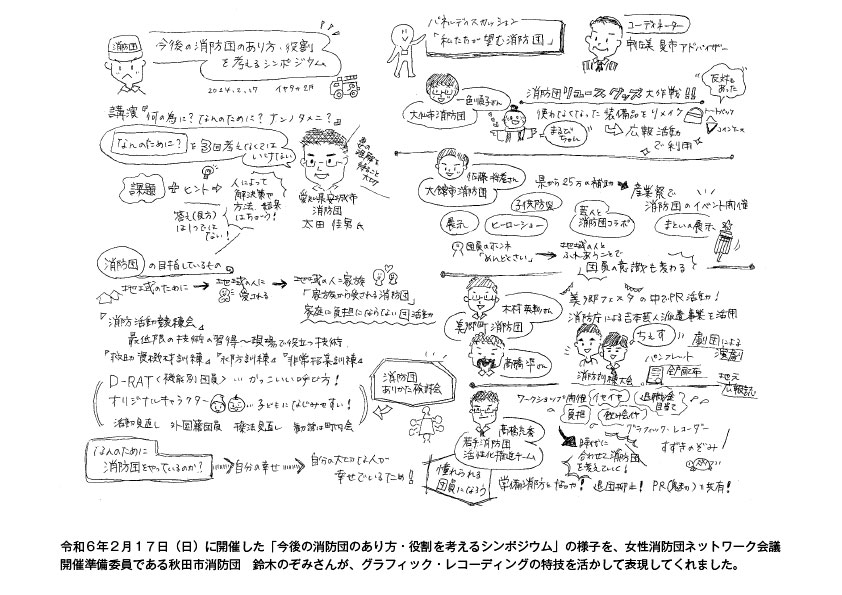 消防団
今後の消防団のあり方・役割
を考えるシンポジウム
2024.2.17
講演『何の為に?なんのために?ナンノタメニ?』
なんのために?
を3回考えなくては
いけない
課題
ヒント
人によって
解決策や
方法、結果
はちがう!
答え(見方)
は1つでは
ない!
愛知県安城市
消防団
太田 佳男氏
消防団
の目指しているもの
地域のために
地域の人に
愛される
地域の人に家族
「家族から愛される消防団」
家庭に負担にならない団活動
『消防活動競技会』
最低限の技術の習得〜現場で役立つ技術
『非常招集訓練』
D-RAT(機能別団員)…かっこいい呼び方!
オリジナルキャラクター
…子どもになじみやすい!
活動の見直し 外国籍団員 操法見直し 勧誘は町内会
消防団
ありかた検討会
なんのために
消防団をやっているのか?
自分の幸せ
自分の大切な人が
幸せでいるため!
パネルディスカッション
「私たちが望む消防団」
コーディネーター
アドバイザー
大仙市消防団
消防団リユースグッズ大作戦!!
使わなくなった装備品をリメイク
広報活動
で利用
反対も
あった
トートバッグ
コインケース
まるびちゃん
大館市消防団
県から25万の補助
産業祭で
消防団のイベント開催
子供防災
展示
ヒーローショー
芸人と
消防団コラボ
まといの展示
団員のホンネ
「めんどくさい」
地域の人と
ふれあうことで
団員の意識も変わる
美郷町消防団
美郷フェスタの中でPR活動!
消防庁による吉本芸人派遣事業を活用
ちぇす
消防訓練大会
劇団による
演劇
パンフレット
全戸配布
地元
広報誌
若手消防団
活性化推進チーム
ワークショップ開催
イヤイヤ
負担
退職金
目当て
飲み会や
グラフィック・レコーダー
すずきのぞみ
時代に
合わせた消防団
を考えていく!
憧れられる
団員になろう
常備消防と協力! 退団抑止! PR(魅力)を共有!
令和6年2月17日(日)に開催した「今後の消防団のあり方・役割を考えるシンポジウム」の様子を、女性消防団ネットワーク会議
開催準備委員である秋田市消防団 鈴木のぞみさんが、グラフィック・レコーディングの特技を活かして表現してくれました。